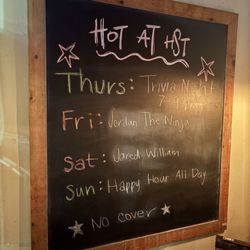 HOT AT HST
Thurs: Trivia Night
7-9
Fri: Jordan The Ninja
Sat: Jared William
Sun: Happy Hour All Day
No cover